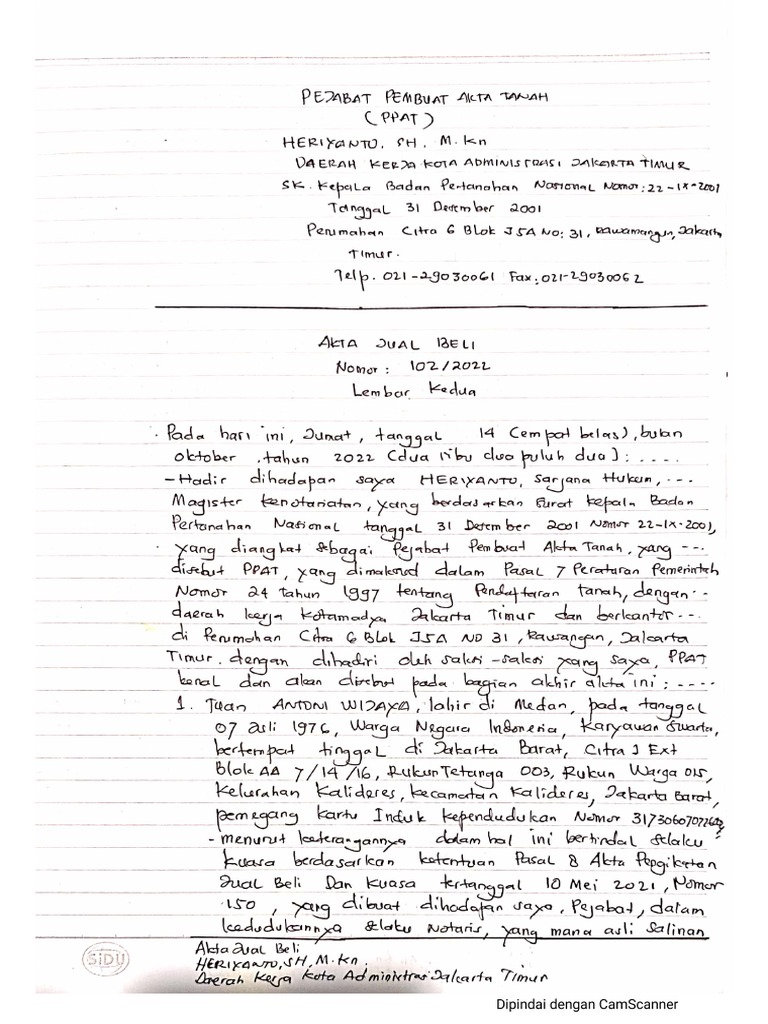 PEJABAT PEMBUAT AKTA TANAH
(PPAT)
HERIYANTO, SH, M.Kn
DAERAH KERJA KOTA ADMINISTRASI JAKARTA TIMUR
SK. Kepala Badan Pertanahan Nasional Nomor: 22-IX-2001
Tanggal 31 Desember 2001
Perumahan Citra 6 Blok J5A No: 31, Rawamangun, Jakarta
Timur.
Telp. 021-29030061 Fax: 021-29030062
AKTA JUAL BELI
Nomor: 102/2022
Lembar Kedua
Pada hari ini, Jumat, tanggal 14 (empat belas), bulan
oktober tahun 2022 (dua ribu dua puluh dua): ....
- Hadir dihadapan saya HERIYANTO, Sarjana Hukum, ...
Magister kenotariatan, yang berdasarkan Surat kepala Badan
Pertanahan Nasional tanggal 31 Desember 2001 Nomor 22-IX-2001,
yang diangkat sebagai Pejabat Pembuat Akta Tanah, yang ---
disebut PPAT, yang dimaksud dalam Pasal 7 Peraturan Pemerintah
Nomor 24 tahun 1997 tentang Pendaftaran tanah, dengan--
daerah kerja Kotamadya Jakarta Timur dan berkantor---
di Perumahan Citra 6 Blok J5A NO 31, Rawangan, Jakarta
Timur. dengan dihadiri oleh saksi-saksi yang saya, PPAT
kenal dan akan disebut pada bagian akhir akta ini; ....
1. Tuan ANTONI WIJAYA, lahir di Medan, pada tanggal
07 Juli 1976, Warga Negara Indonesia, Karyawan Swasta,
bertempat tinggal di Jakarta Barat, Citra 1 Ext
Blok AA 7/14/16, Rukun Tetanga 003, Rukun Warga 015,
Kelurahan Kalideres, Kecamatan Kalideres, Jakarta Barat,
pemegang kartu Induk kependudukan Nomor
- menurut keterangannya dalam hal ini bertindak selaku
kuasa berdasarkan ketentuan Pasal 8 Akta Pengikatan
Jual Beli Dan Kuasa tertanggal 10 Mei 2021, Nomor
150, yang dibuat dihadapan saya, Pejabat, dalam
kedudukannya selaku Notaris, yang mana asli Salinan
SiDU
Akta Jual Beli
HERIYANTO, SH, M.Kn.
Daerah Kerja Kota Administrasi Jakarta Timur
Dipindai dengan CamScanner